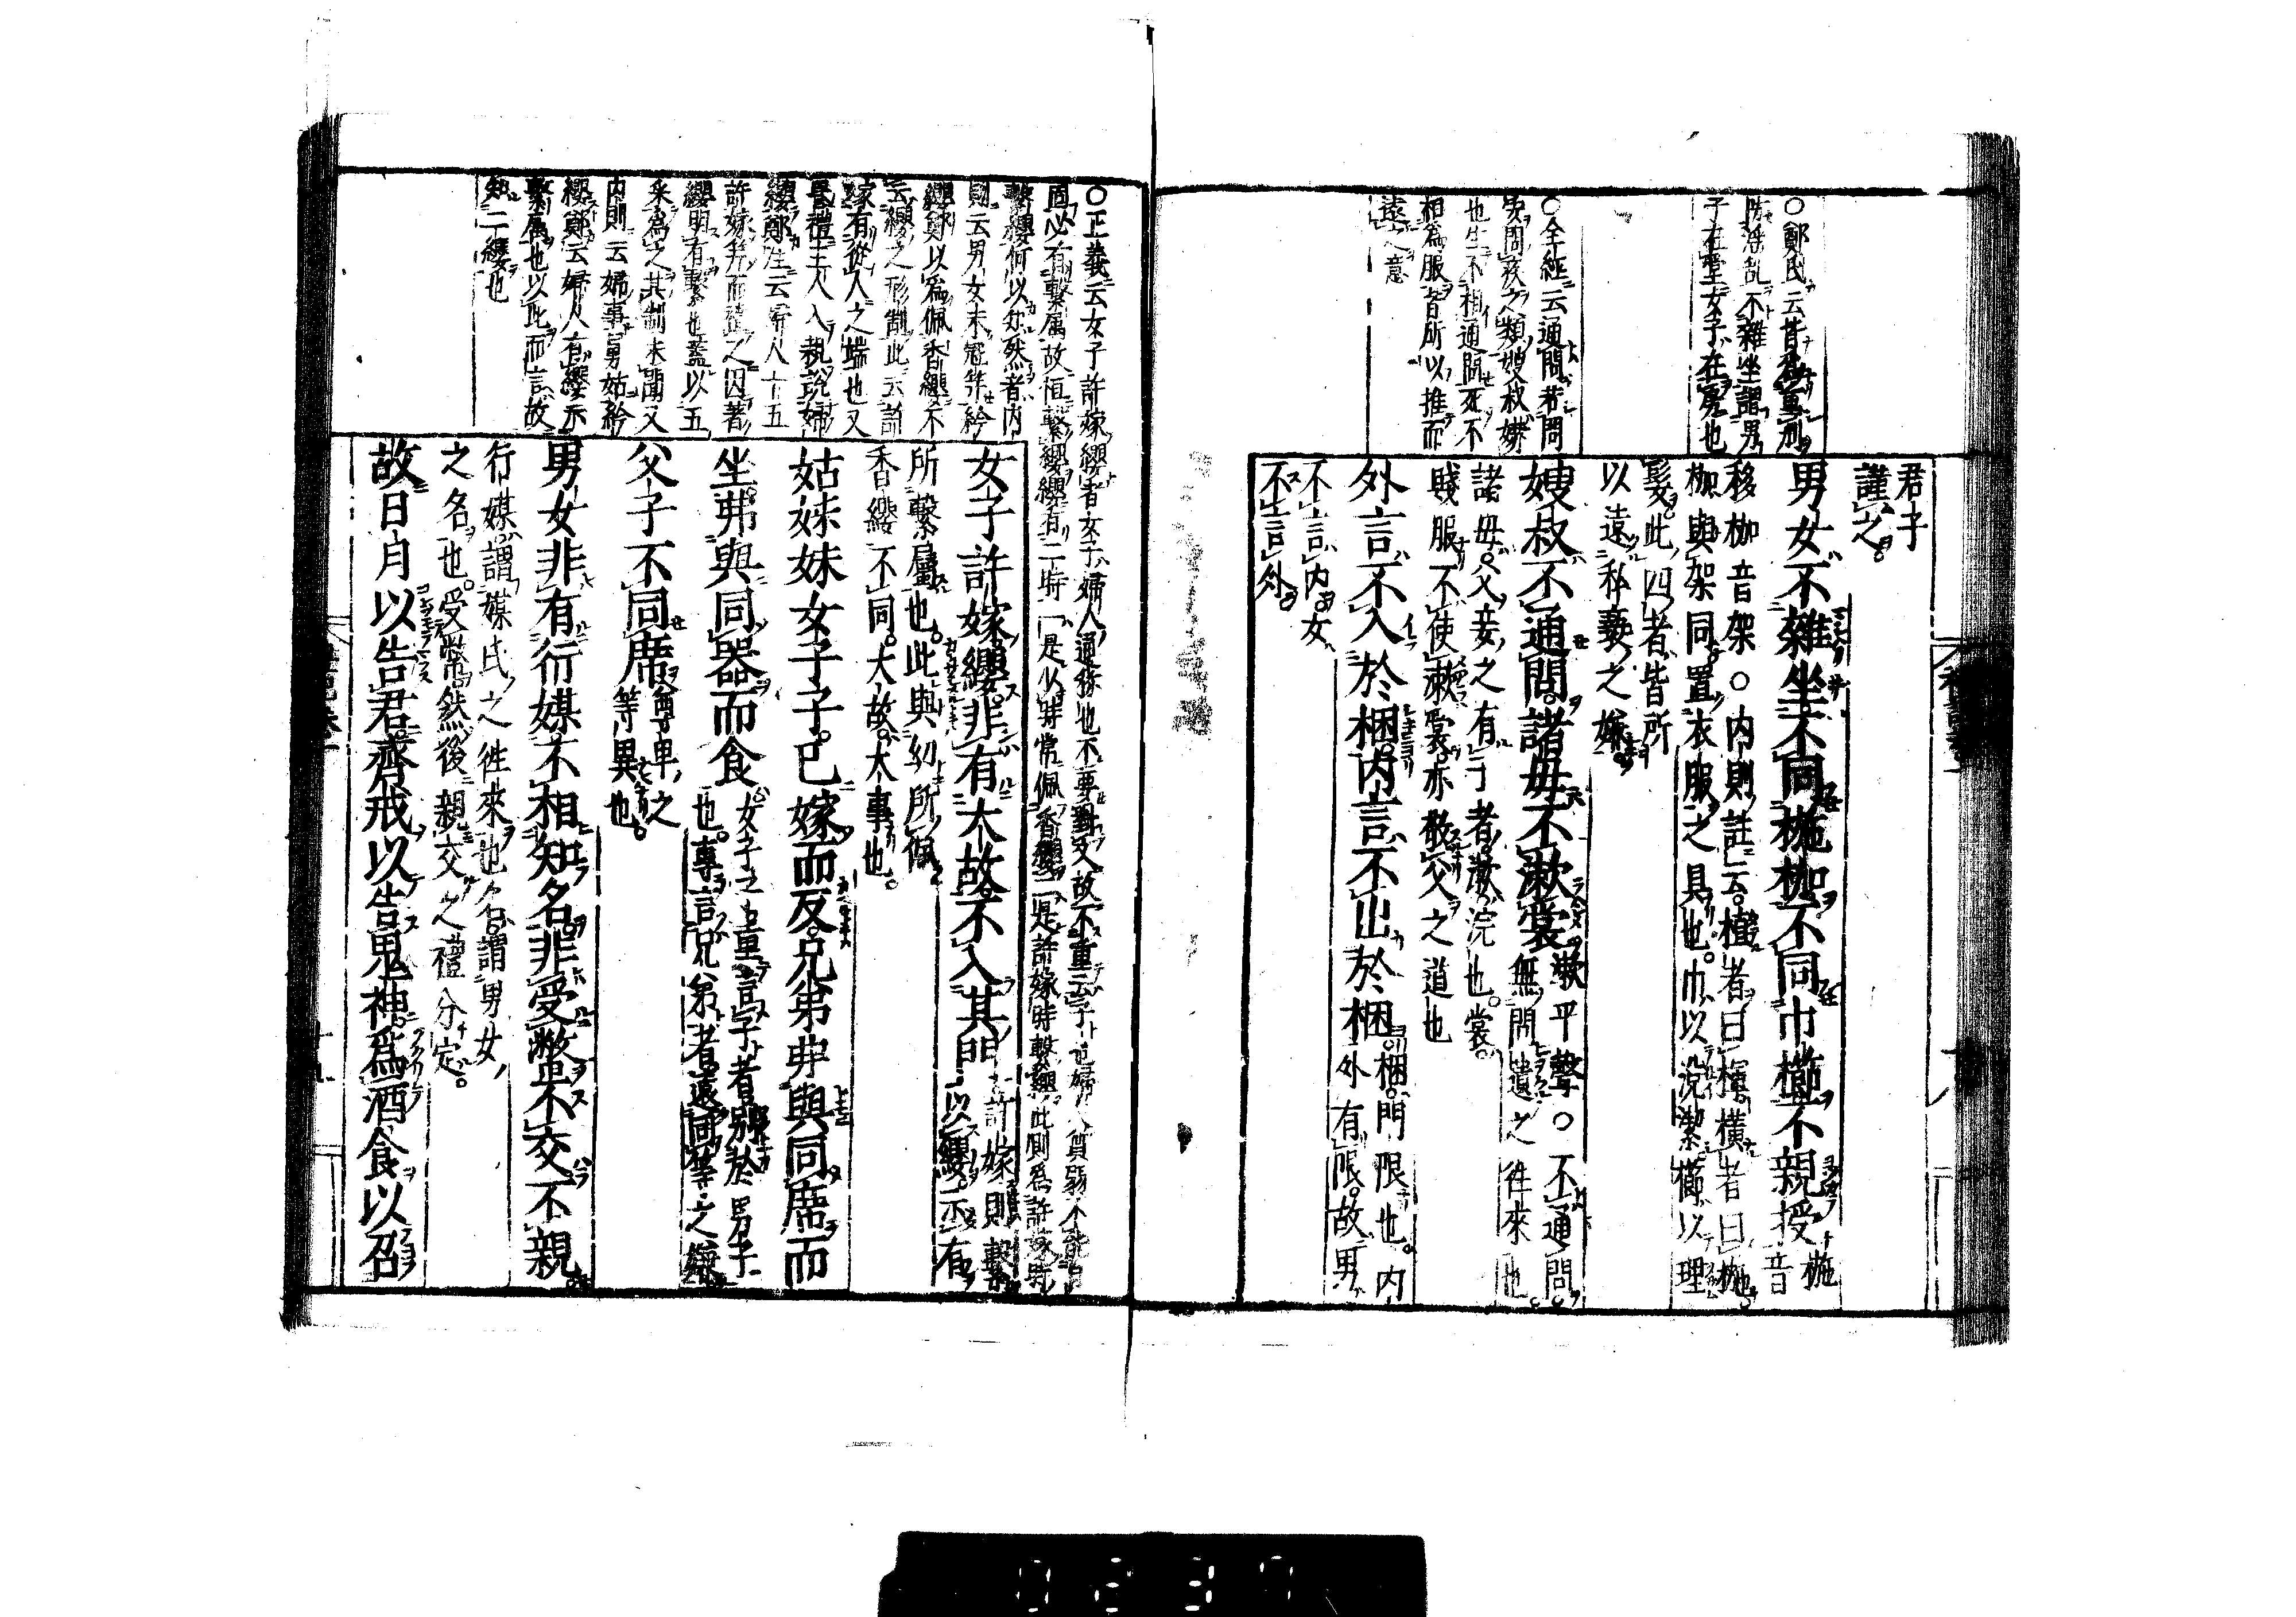 ○鄭氏云皆爲重別
防淫乱不雜坐謂男
子在堂女子在房也
○全經云通問若問
安問疾之類嫂叔嫌
也生不相通問死不
相爲服皆所以推而
遠之意
君子
謹之。
男女不雜坐不同椸枷不同巾櫛不親授椸
音
移枷音架○内則註云。植者曰楎横者曰椸也。
枷與架同。置衣服之具也。巾以涚潔櫛以理
髮。此四者皆所
以遠私褻之嫌。
嫂叔不通問。諸母不漱裳漱平聲○不通問。
無問遺之徃來也。
諸母。父妾之有子者。漱浣也。裳。
賤服。不使漱裳。亦敬父之道也
外言不入於梱。内言不出於梱梱。門限也。内
外有限。故男
不言内。女
不言外。
○正義云女子許嫁纓者女子婦人通稱也不要對文故不重云子也婦人質弱不能自
固必有繫属故恒繫纓纓有二時一是少時常佩香纓二是許嫁時繫纓此則爲許嫁時
繫纓何以知然者内
則云男女未冠笄紟
纓鄭以爲佩香纓不
云纓之形制此云許
嫁有從人之端也又
昏禮主人入親說婦
纓鄭注云婦人十五
許嫁笄而禮之因著
纓明有繫也蓋以五
采爲之其制未聞又
内則云婦事舅姑紟
纓鄭云婦人有纓示
繫属也以此而言故
知二纓也
女子許嫁纓。非有大故不入其門許嫁則繫
以纓。示有
所繫屬也。此與幼所佩
香纓不同。大故。大事也。
姑姊妹女子子。已嫁而反。兄弟弗與同席而
坐弗與同器而食女子子重言子者別於男子
也。專言兄弟者遠同等之嫌
父子不同席尊卑之
等異也。
男女非有行媒不相知名。非受幣不交不親
行媒謂媒氏之徃來也名謂男女
之名也。受幣然後親交之禮分定。
故日月以告君。齊戒以告鬼神。爲酒食以召